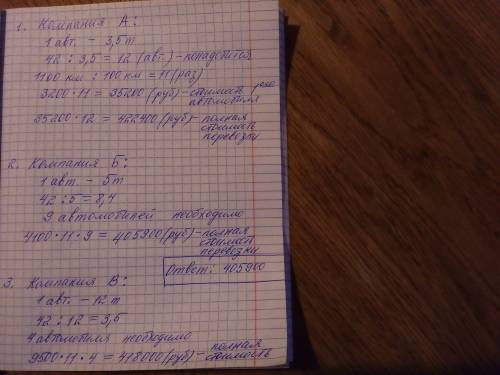 1. Компания А:
1 авт. – 3,5т
42 : 3,5 = 12 (авт.) – понадобится
1100 км : 100 км = 11 (раз)
3200 · 11 = 35200 (руб) – стоимость 1-ого
автомобиля
35200 · 12 = 422400 (руб) – полная
стоимость
перевозки
2. Компания Б:
1 авт. – 5т
42 : 5 = 8,4
9 автомобилей необходимо
4100 · 11 · 9 = 405900 (руб) – полная
стоимость
перевозки
Ответ: 405900
3. Компания В:
1 авт. – 12 т
42 : 12 = 3,5
4 автомобиля необходимо
9500 · 11 · 4 = 418000 (руб) – полная
стоимость